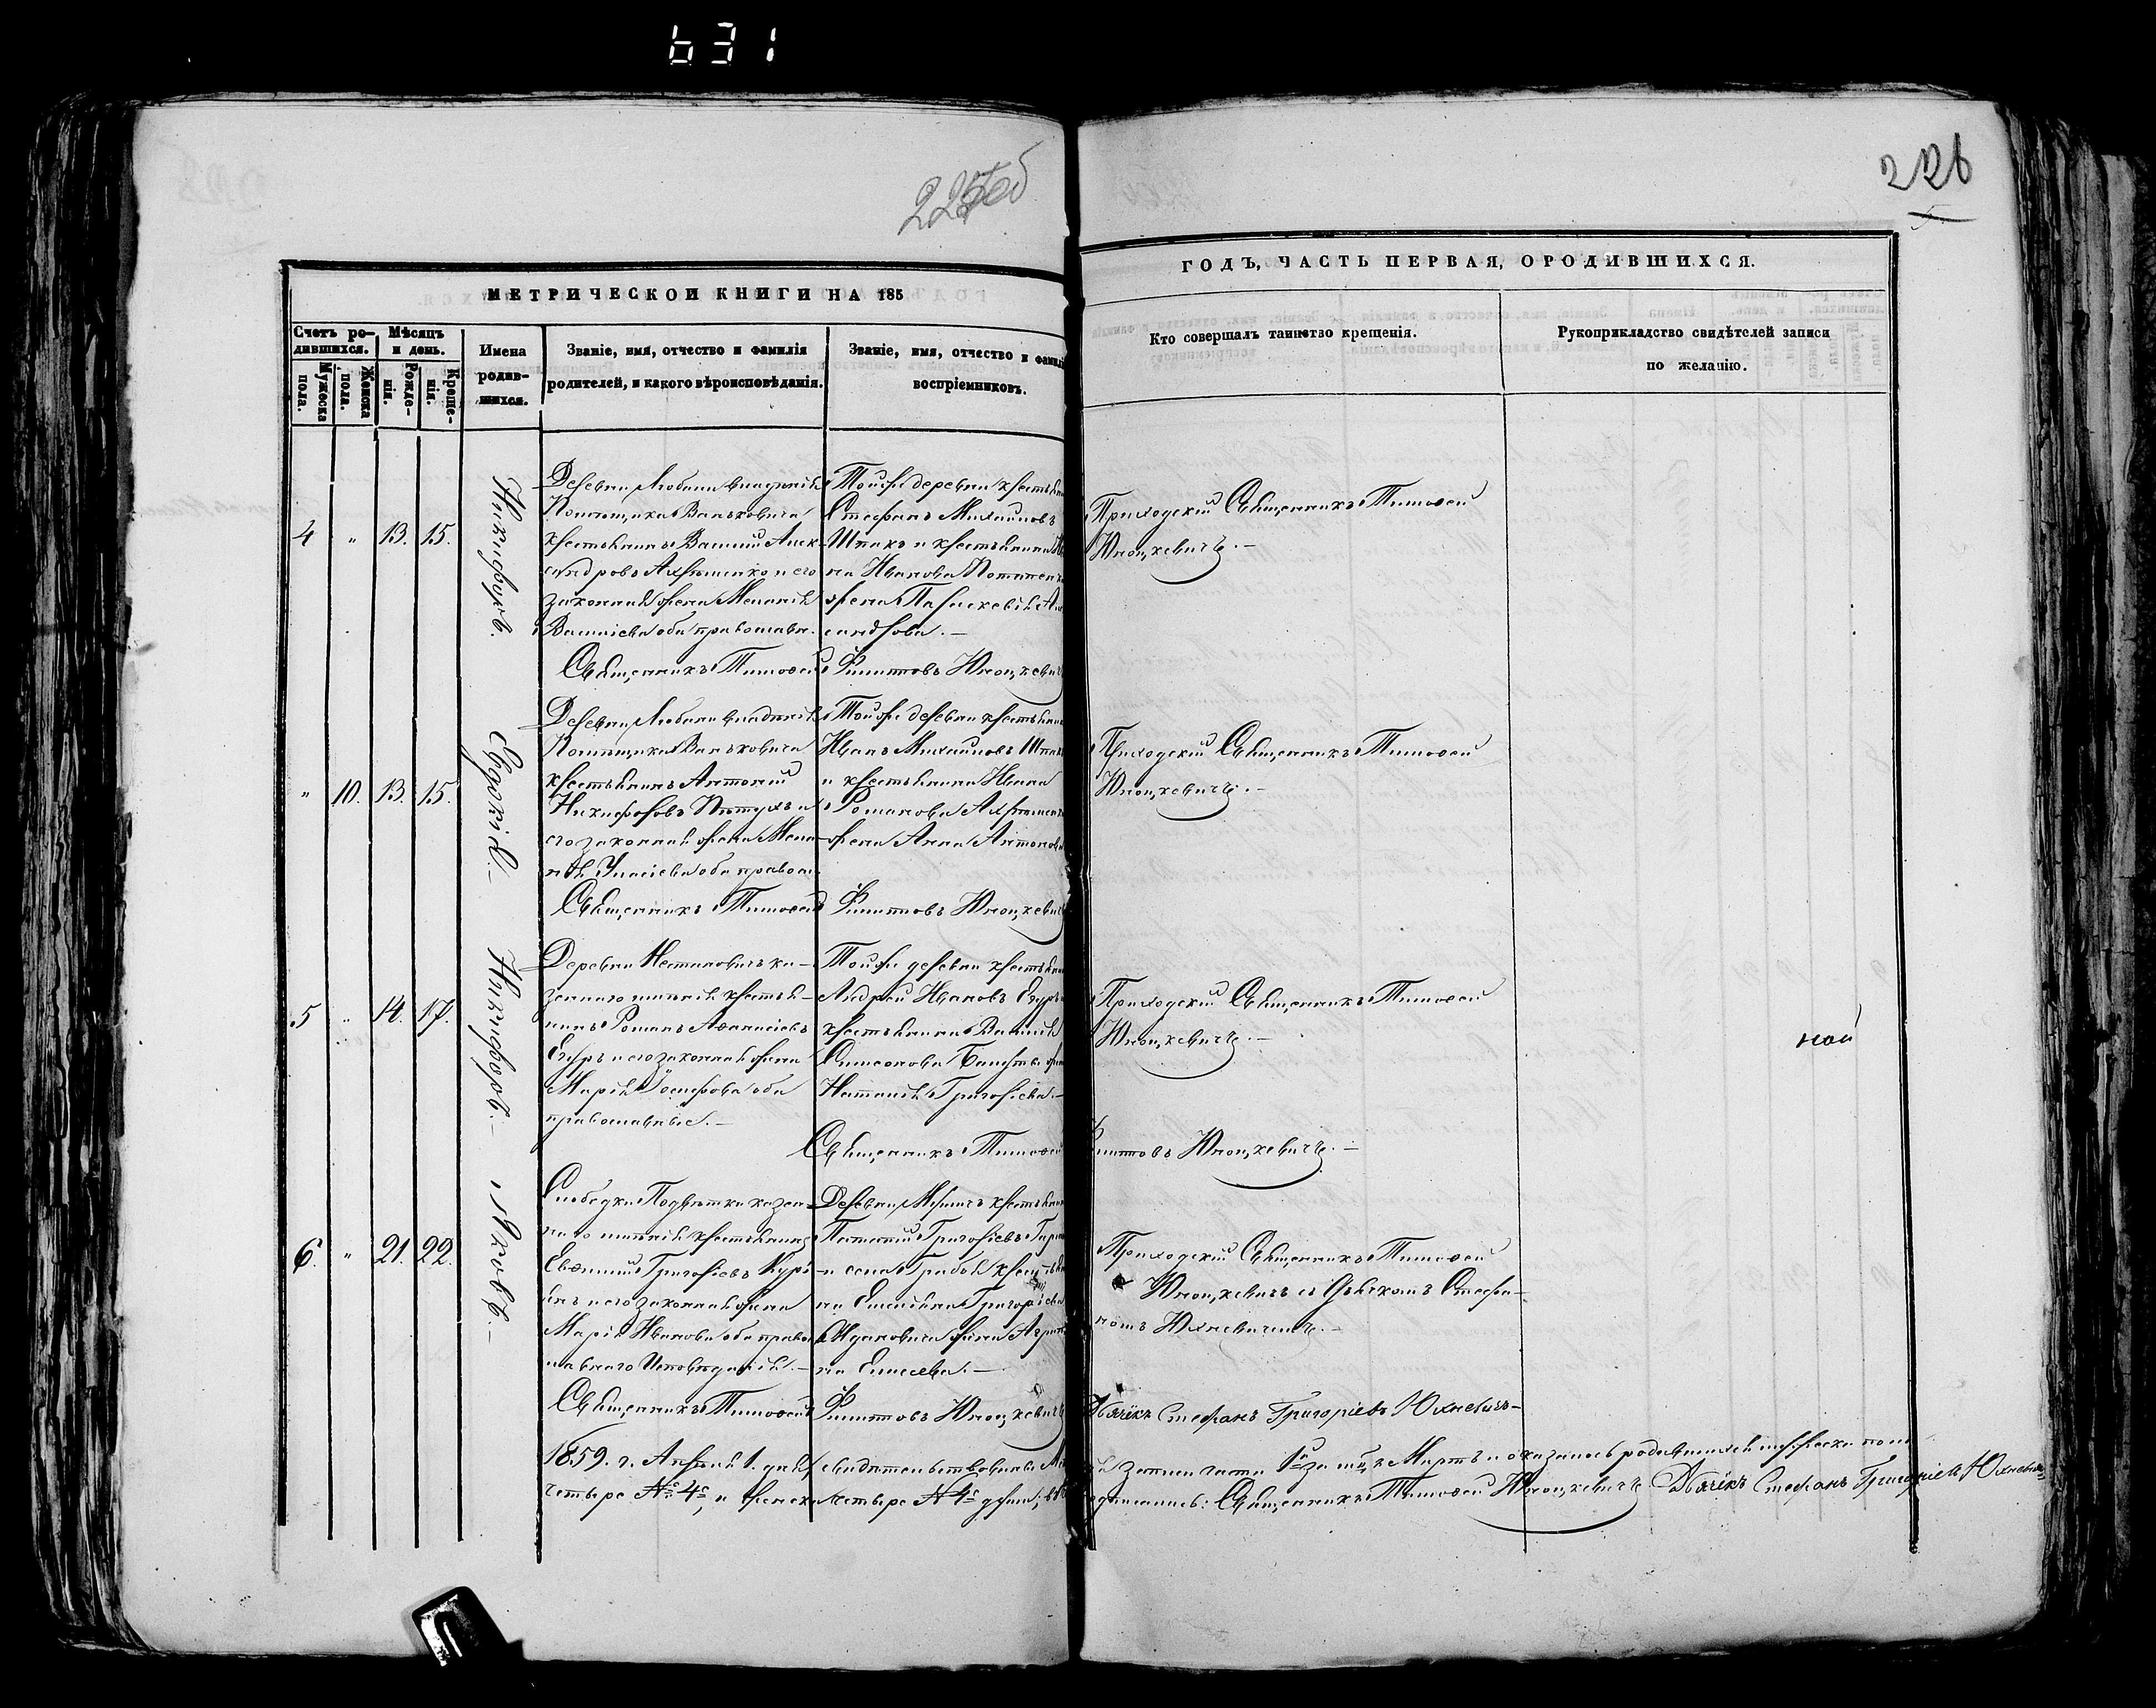 631
225 об
226
МЕТРИЧЕСКОИ КНИГИ НА 185
ГОДЪ, ЧАСТЬ ПЕРВАЯ, ОРОДИВШИХСЯ.
Счетъ ро-
дившихся.
Мужеска
пола.
Женска
пола.
Мѣсяцъ
и день.
Рожде-
нія.
Креще-
нія.
Имена
родив-
шихся.
Званіе, имя, отчество и фамилія
родителей, и какого вѣроисповѣданія.
Званіе, имя, отчество и фамилі
воспріемниковъ.
Кто совершалъ таинство крещенія.
Рукоприкладство свидѣтелей записи
по желанію.
4 " 13. 15.
Никифоръ.
Деревни Любани владѣнія
Помѣщика Ваньковича
крестьянинъ Василій Алек-
сандровъ Ахрѣменко и его
законная жена Меланія
Василіева оба православн.
Той же деревни крестьянин
Стефанъ Михаиловъ
Шпакъ и крестьянина
на Иванова
жена Параскевія Але
сандрова. —
Приходскій Священникъ Тимоѳей
Юноцкевичъ. —
Священникъ Тимоѳей Филиповъ Юноцкевичъ
" 10. 13. 15.
Евдокія. —
Деревни Любани владѣнія
Помѣщика Ваньковича
крестьянинъ Антоній
Никифоровъ Пѣтухъ и
его законная жена Мела-
нія Уласіева оба правосл.
Той же деревни крестьянин
Иванъ Михаиловъ Шпакъ
и крестьянина Ивана
Романова Ахрѣменк
жена Анна Антонова
Приходскій Священникъ Тимоѳей
Юноцкевичъ. —
Священникъ Тимоѳей Филиповъ Юноцкевичъ
5 " 14. 17.
Никифоръ. —
Деревни Нестановичъ ка-
зеннаго имѣнія крестья-
нинъ Романъ Аѳанасіевъ
и его законная жена
Марія Іосифова оба
православные. —
Той же деревни крестьянин
Андрей Ивановъ
крестьянина Василія
Симеонова жен
Наталія Григоріева. —
Приходскій Священникъ Тимоѳей
Юноцкевичъ. —
ной
Священникъ Тимоѳей Филиповъ Юноцкевичъ. —
6. " 21. 22.
Яковъ. —
Слободки Подвѣтки казен-
наго имѣнія крестьянинъ
Евѳимій Григоріевъ Кури-
анъ и его законная жена
Марія Иванова оба право
славнаго Исповѣданія. —
Деревни крестьянин
Григоріевъ
и села Грабья крестья
на Емеліана Григоріева
жена Агри
на Елисѣева. —
Приходскій Священникъ Тимоѳей
Юноцкевичъ съ Дьячкомъ Стефа-
номъ Юхневичемъ. —
Священникъ Тимоѳей Филиповъ Юноцкевичъ
Дьячекъ Стефанъ Григоріевъ Юхневичъ-
1859. г. Апрѣля 1. дня свидѣтельствованы записи части 1й за мцъ Мартъ и оказалось родившихся мужеска пола
четыре № 4е, и женска четыре № 4е душъ; Священникъ Тимоѳей Юноцкевичъ Дьячекъ Стефанъ Григоріевъ Юхневичъ